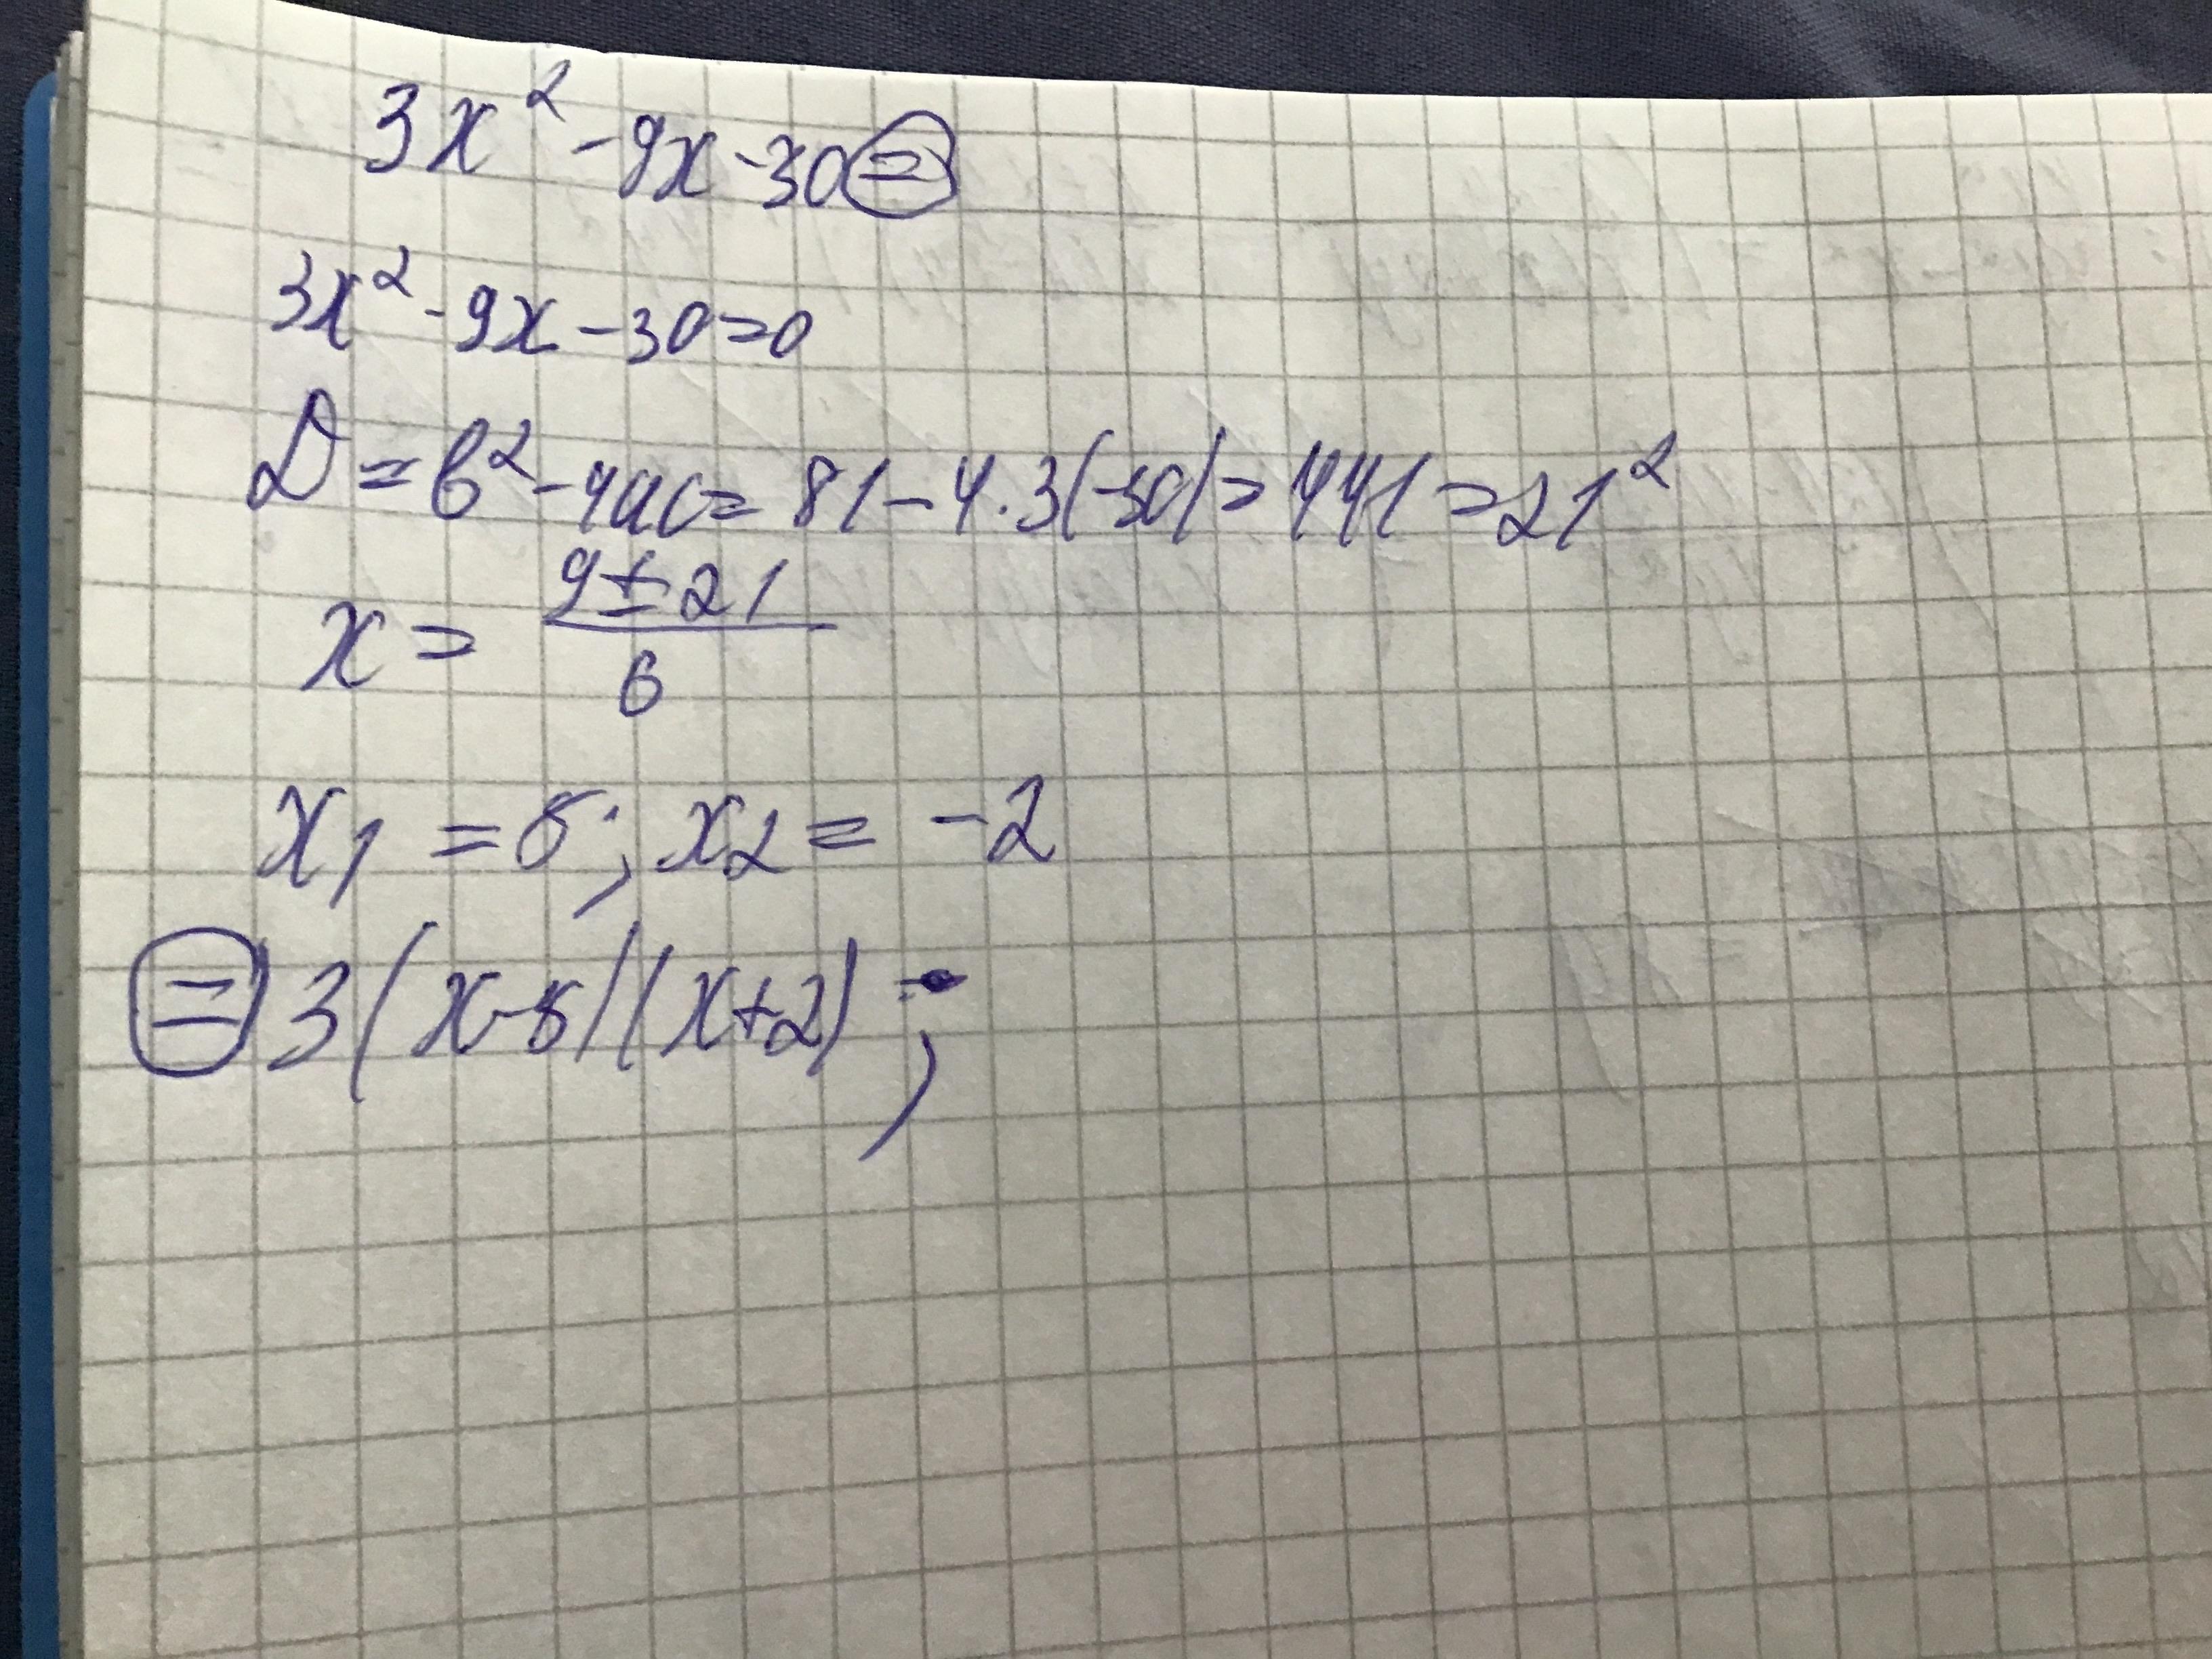 3x² - 9x - 30 =
3x² - 9x - 30 = 0
D = b² - 4ac = 81 - 4·3(-30) = 441 = 21²
x = (9 ± 21)/6
x₁ = 5; x₂ = -2
= 3(x-5)(x+2);